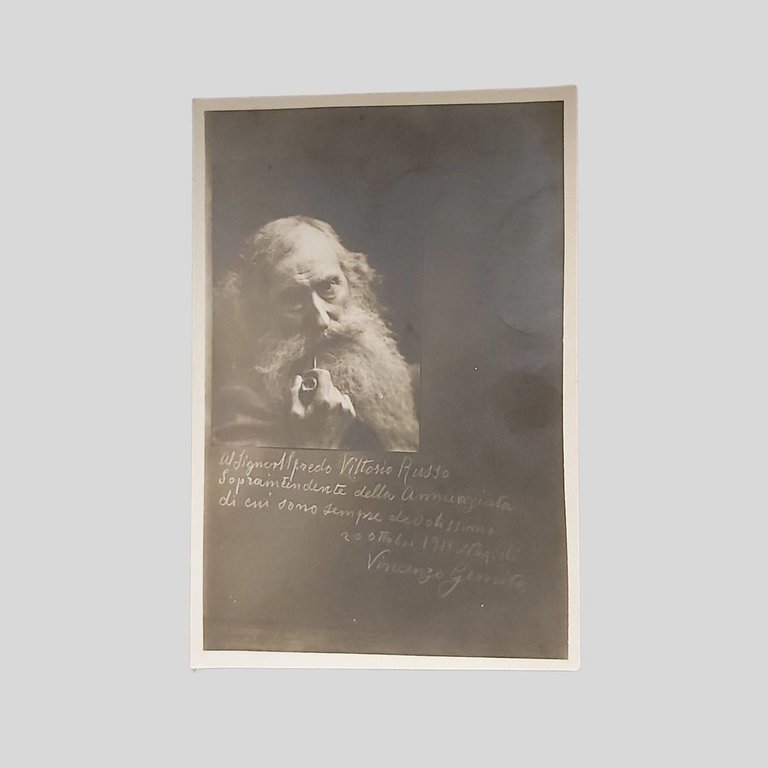 Al Signor Alfredo Vittorio Russo
Sopraintendente della Annunziata
di cui sono sempre devotissimo
20 ottobre 191 Napoli
Vincenzo Gemito